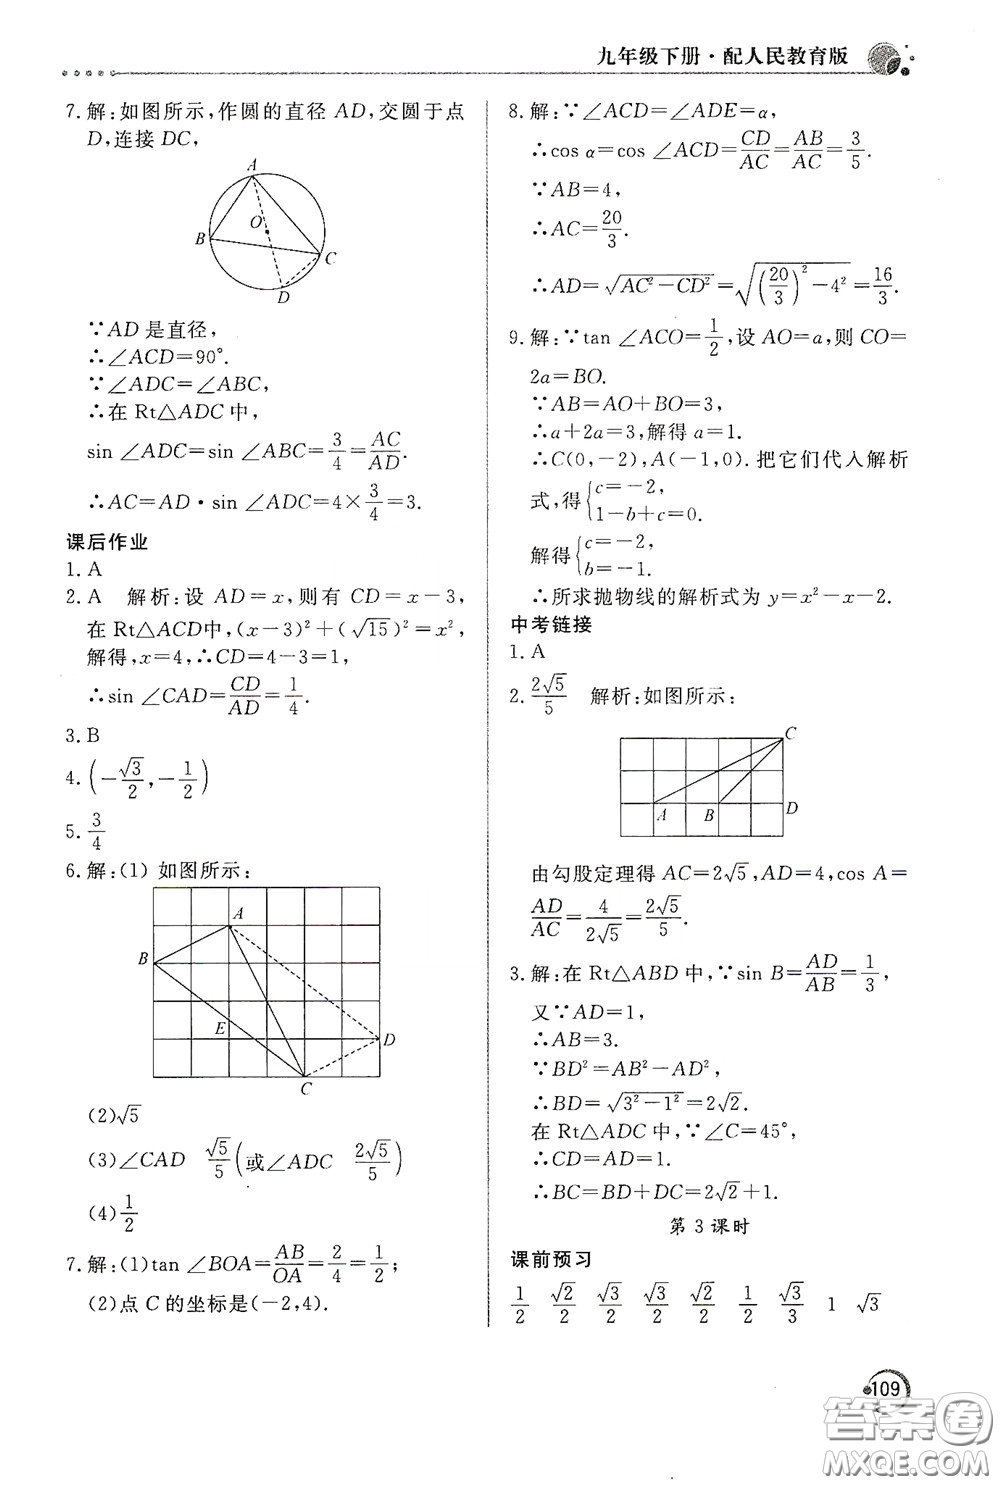 九年级下册·配人民教育版
7. 解:如图所示,作圆的直径 AD,交圆于点
D,连接 DC,
A
O
B
C
D
∵AD 是直径,
∴∠ACD=90°.
∵∠ADC=∠ABC,
∴在 Rt△ADC 中,
sin ∠ADC=sin ∠ABC=3/4=AC/AD.
∴AC=AD·sin ∠ADC=4×3/4=3.
课后作业
1. A
2. A 解析:设 AD=x,则有 CD=x-3,
在 Rt△ACD中,(x-3)²+(√15)²=x²,
解得,x=4,∴CD=4-3=1,
∴sin ∠CAD=CD/AD=1/4.
3. B
4. (-√3/2,-1/2)
5. 3/4
6. 解:(1) 如图所示:
A
B
E
D
C
(2)√5
(3)∠CAD √5/5(或∠ADC 2√5/5)
(4)1/2
7. 解:(1)tan ∠BOA=AB/OA=2/4=1/2;
(2)点 C 的坐标是(-2,4).
8. 解:∵∠ACD=∠ADE=α,
∴cos α=cos ∠ACD=CD/AC=AB/AC=3/5.
∵AB=4,
∴AC=20/3.
∴AD=√(AC²-CD²)=√((20/3)²-4²)=16/3.
9. 解:∵tan ∠ACO=1/2,设 AO=a,则 CO=
2a=BO.
∵AB=AO+BO=3,
∴a+2a=3,解得 a=1.
∴C(0,-2),A(-1,0). 把它们代入解析
式,得{c=-2,
1-b+c=0.
解得{c=-2,
b=-1.
∴所求抛物线的解析式为 y=x²-x-2.
中考链接
1. A
2. 2√5/5 解析:如图所示:
C
A B D
由勾股定理得 AC=2√5,AD=4,cos A=
AD/AC=4/2√5=2√5/5.
3. 解:在 Rt△ABD 中,∵sin B=AD/AB=1/3,
又∵AD=1,
∴AB=3.
∵BD²=AB²-AD²,
∴BD=√(3²-1²)=2√2.
在 Rt△ADC 中,∵∠C=45°,
∴CD=AD=1.
∴BC=BD+DC=2√2+1.
第 3 课时
课前预习
1/2 √2/2 √3/2 √3/2 √2/2 1/2 √3/3 1 √3
109
答案卷
MXQE.COM